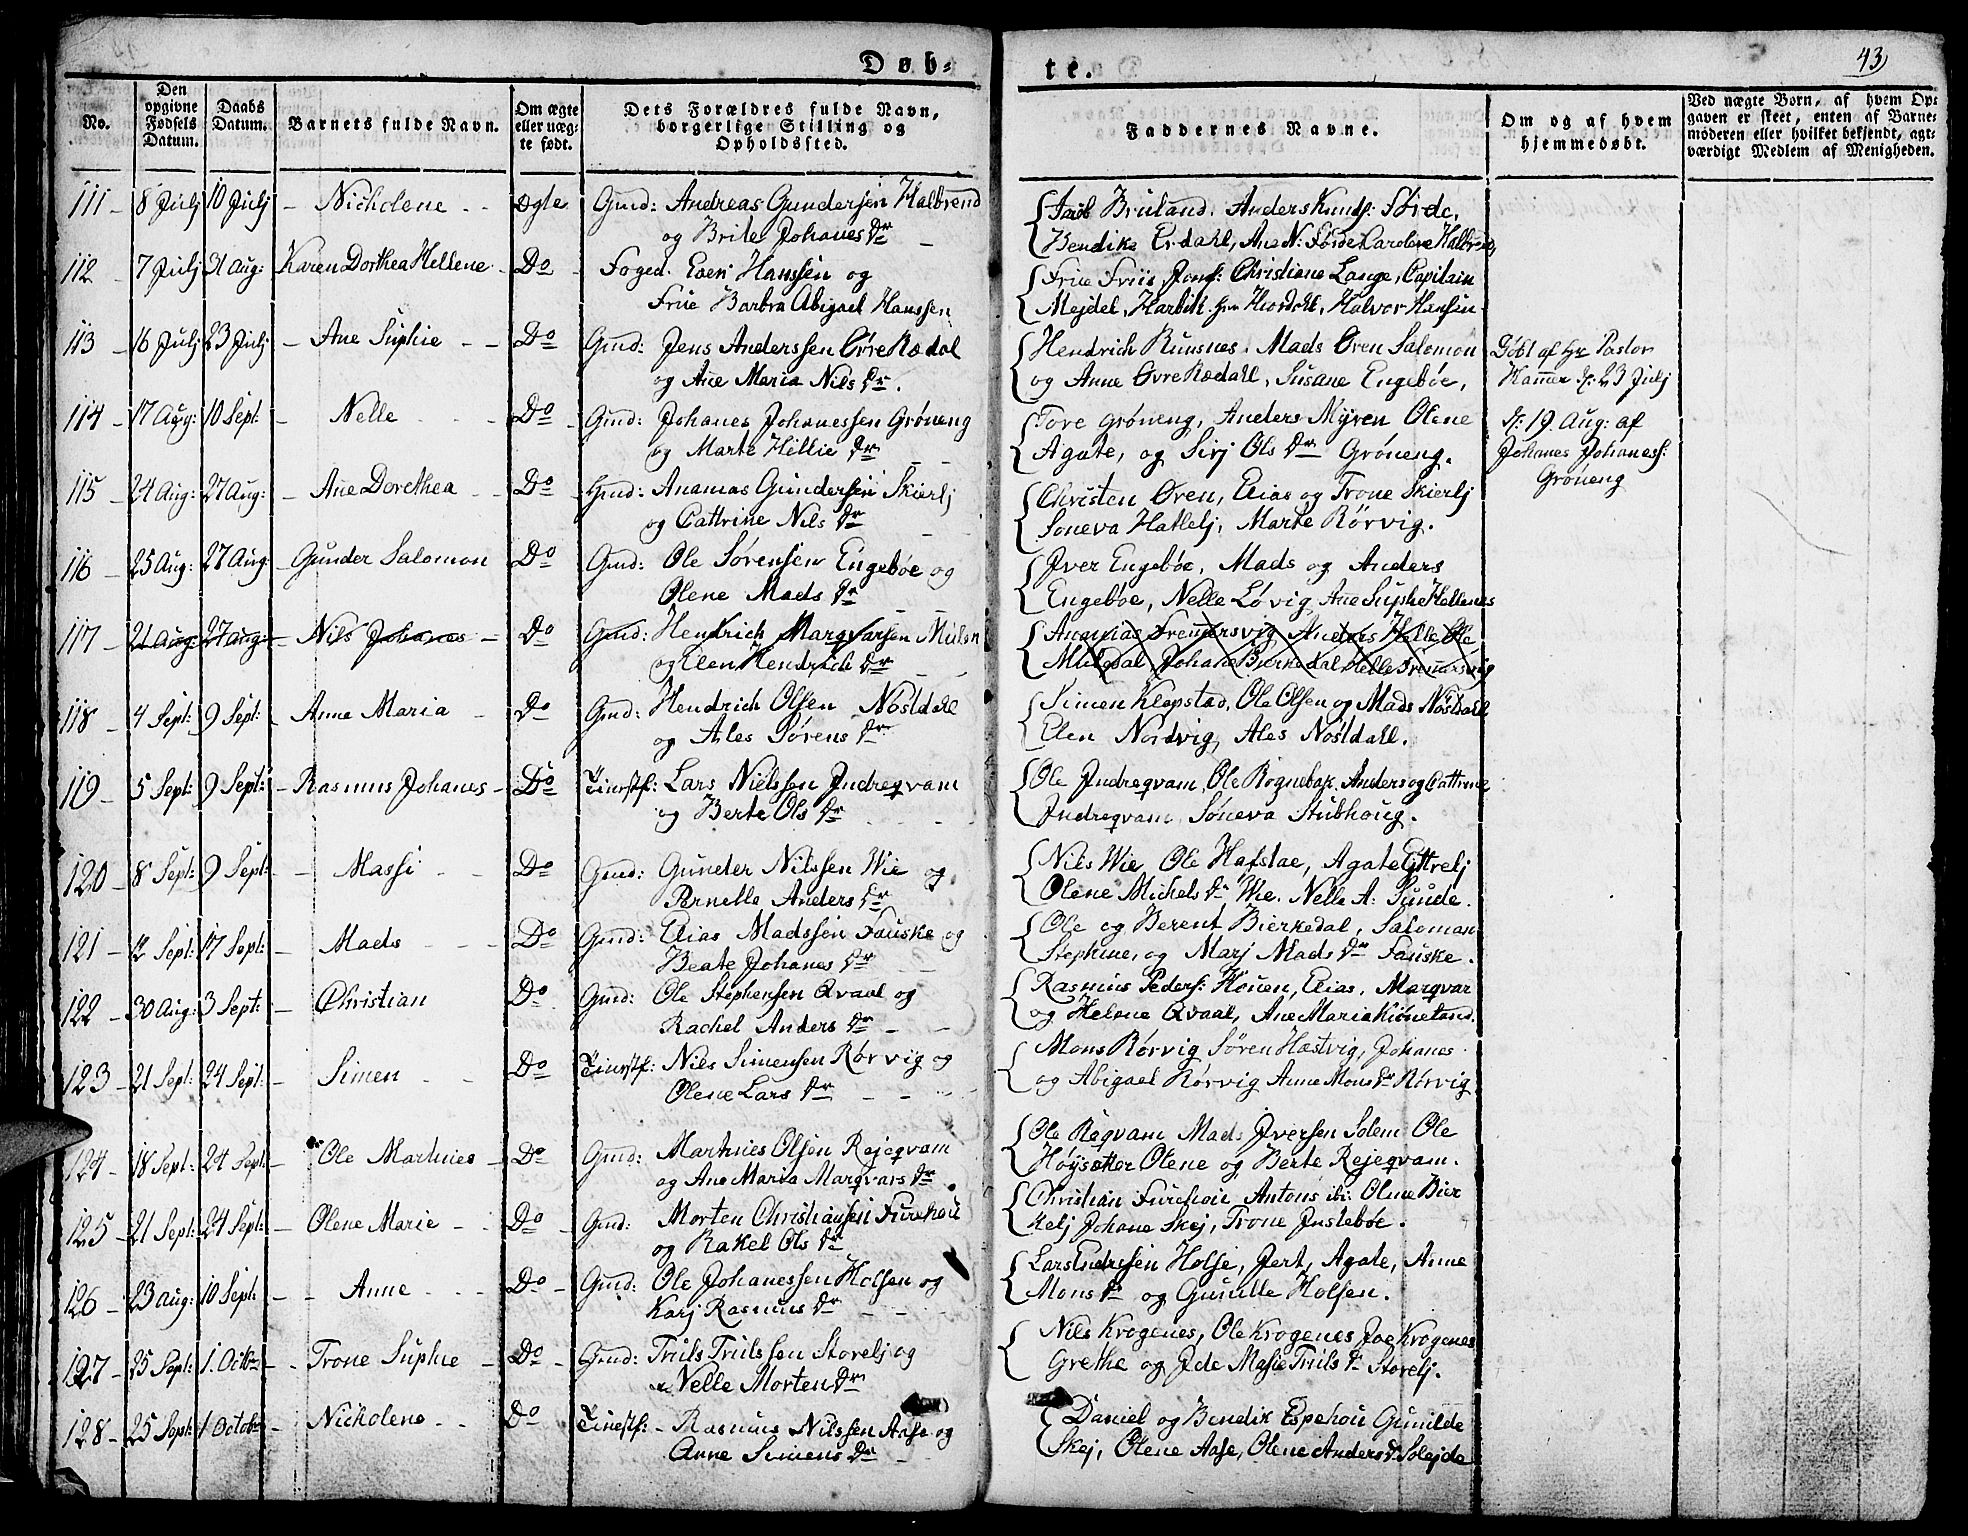 Døb-
te.
43
No.
Den opgivne Fødsels Datum.
Daabs Datum.
Barnets fulde Navn.
Om ægte eller uægte født.
Dets Forældres fulde Navn, borgerlige Stilling og Opholdssted.
Faddernes Navne.
Om og af hvem hjemmedøbt.
Ved uægte Børn, af hvem Opgaven er skeet, enten af Barnemoderen eller hvilket bekjendt, agtværdigt Medlem af Menigheden.
111 - 8 Julj 10 Julj - Nicholene - - Ægte Gmd: Andreas Gundersen Halbrend
og Brite Johanes Dr
Jacob Bruland, Anders Knuds: Førde,
Bendike Erdahl, Ane N: Førde Caroline Halbrend
112 7 Julj 31 Aug: Karen Dorthea Hellene - Do - Foged. Even Hanssen og
Frue Barbra Abigael Hanssen
Frue Friis Jomf: Christiane Lange, Capitain
Mejdel, Harbitz, Halvor Hansen
113 - 16 Julj 23 Julj - Ane Suphie - - Do Gmd: Jens Anderssen Øvre Kædal
og Ane Maria Nils Dr.
Hendrich Runsnes, Mads Øren Salomon
og Anne Øvre Kædahl, Susane Engebøe,
Døbt af Hr Pastor
Hammer d: 23 Julj
114 - 17 Aug: 10 Sept: - Nelle - - Do - Gmd: Johanes Johanessen Grøneng
og Marte Hillie Dr
Tore Grøneng, Anders Myren Olene
Agate, og Sirj Ols Dr Grøneng.
d: 19 Aug: af
Johanes Johaness:
Grøneng
115 - 24 Aug: 27 Aug: - Ane Dorethea - - Do - Gmd: Ananias Gundersen Skierlj
og Cattrine Nils Dr
Christen Øren, Elias og Trone Skierlj
Soneva Hatlelj, Marte Rørvig.
116 - 25 Aug: 27 Aug: - Gunder Salomon Do Gmd: Ole Sørensen Engebøe og
Olene Mads Dr
Iver Engebøe, Mads og Anders
Engebøe, Nelle Løvig Ane Suphe Hellenes
117 - 21 Aug: 27 Aug: - Nils Johanes - Do Gmd: Hendrich Marqvarsen
og Elen Hendrich Dr
Ananias Frennersvig Anders Halle Ole
118 - 4 Sept: 9 Sept: - Anne Maria - Do Gmd: Hendrich Olsen Nøsldahl
og Ales Sørens Dr
Simen Klopstad, Ole Olsen og Mads Nøsldahl
Elen Nordvig, Ales Nøsldall.
119 - 5 Sept: 9 Sept: - Rasmus Johanes - Do Lars Nielssen Indreqvam
og Berte Ols Dr
Ole Indreqvam, Ole Rognebak, Anders og Cattrine
Indreqvam Søneva Stubhoug.
120 - 8 Sept: 9 Sept: - Massi - - Do Gmd: Gunder Nilssen Wie og
Pernelle Anders Dr
Nils Wie Ole Hafstae, Agate Ytrelj
Olene Michels Dr Wie. Nelle A: Sunde.
121 - 12 Sept: 17 Sept: - Mads - - - Do Gmd: Elias Madssen Fauske og
Beate Johanes Dr
Ole og Berent Bierkedal, Salomon
Stephine, og Marj Mads Dr Fauske.
122 - 30 Aug: 3 Sept: - Christian Do Gmd: Ole Stephensen Qvaal og
Rachel Anders Dr
Rasmus Peders: Houen, Elias, Marqvar
og Helene Qvaal, Ane Maria
123 - 21 Sept: 24 Sept: - Simen - - Do Nils Simensen Rørvig og
Olene Lars Dr
Mons Rørvig Søren Hæstvig, Johanes
og Abigael Rørvig Anne Mons Dr Rørvig
124 - 18 Sept: 24 Sept: - Ole Martinies - Do Gmd: Martines Olsen Rejeqvam
og Ane Maria Marqvars Dr
Ole Reqvam Mads Iversen Solem Ole
Høysætter Olene og Berte Rejeqvam.
125 - 21 Sept: 24 Sept: - Olene Marie - - Do - Gmd: Morten Christiansen Furehou
og Rakel Ols Dr
Christian Furehoie, Antons ibi: Olene Bier
kelj Johane Skej, Trone Instebøe.
126 - 23 Aug: 10 Sept: - - Anne - - - Do - Gmd: Ole Johanessen Holsen og
Karj Rasmus Dr
Lars Endresen Holse, Jert, Agate, Anne
Mons Dr og Gunille Holsen.
127 - 25 Sept: 1. Octbr - - Trone Suphie - Do - Gmd: Truls Trulssen Storelj og
Nelle Morten Dr
Nils Krogenes, Ole Krogenes Joe Krogenes
Grethe og Ide Masie Truls Dr Storelj.
128 - 25 Sept: 1 Octobr - Nicholene - - Do - Rasmus Nilssen Aase og
Anne Simens Dr
Daniel og Bendik Espehou Gunilde
Skej, Olene Aase, Olene Anders Dr Solejde